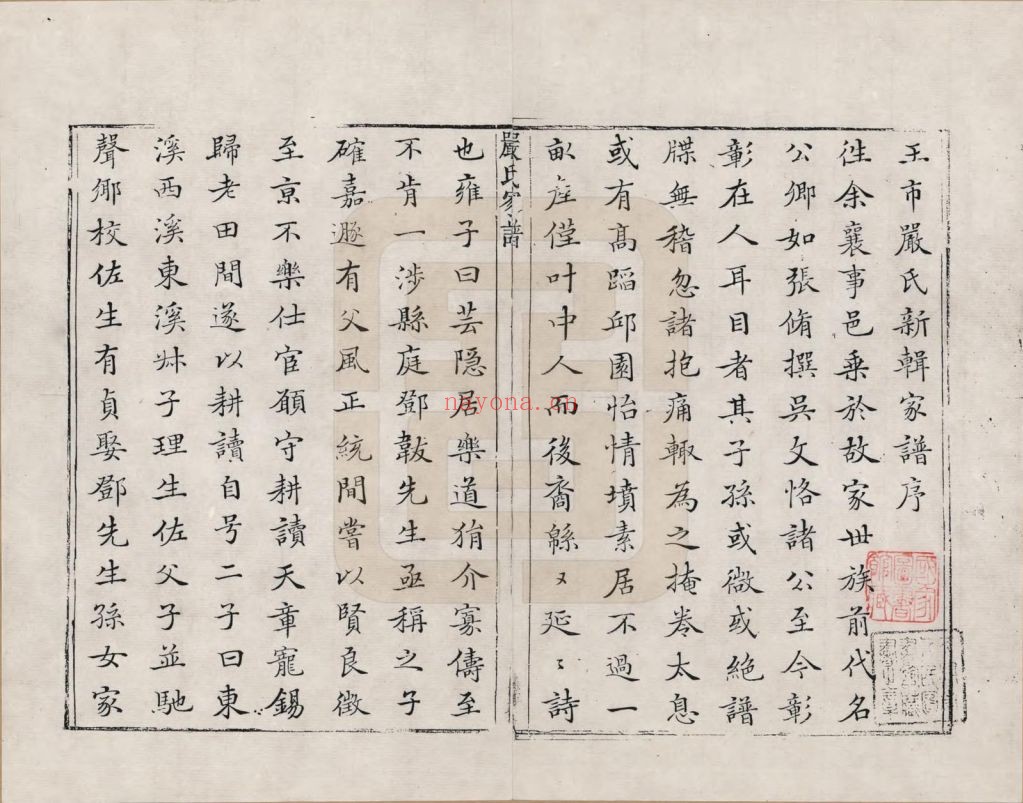 王市嚴氏新輯家譜序
徃余襄事邑乗於故家世族前代名
公卿如張脩撰吳文恪諸公至今彰
彰在人耳目者其子孫或微或絕譜
牒無稽忽諸抱痛輙為之掩卷太息
或有高蹈邱園怡情墳素居不過一
畝產僅叶中人而後裔緜〻延〻詩
嚴氏家譜
也雍子曰芸隠居樂道狷介寡儔至
不肯一涉縣庭鄧韍先生亟稱之子
確嘉遯有父風正統間嘗以賢良徴
至亰不樂仕宦願守耕讀天章寵錫
歸老田間遂以耕讀自号二子曰東
溪西溪東溪子理生佐父子並馳
聲鄉校佐生有貞娶鄧先生孫女家
nayona.cn